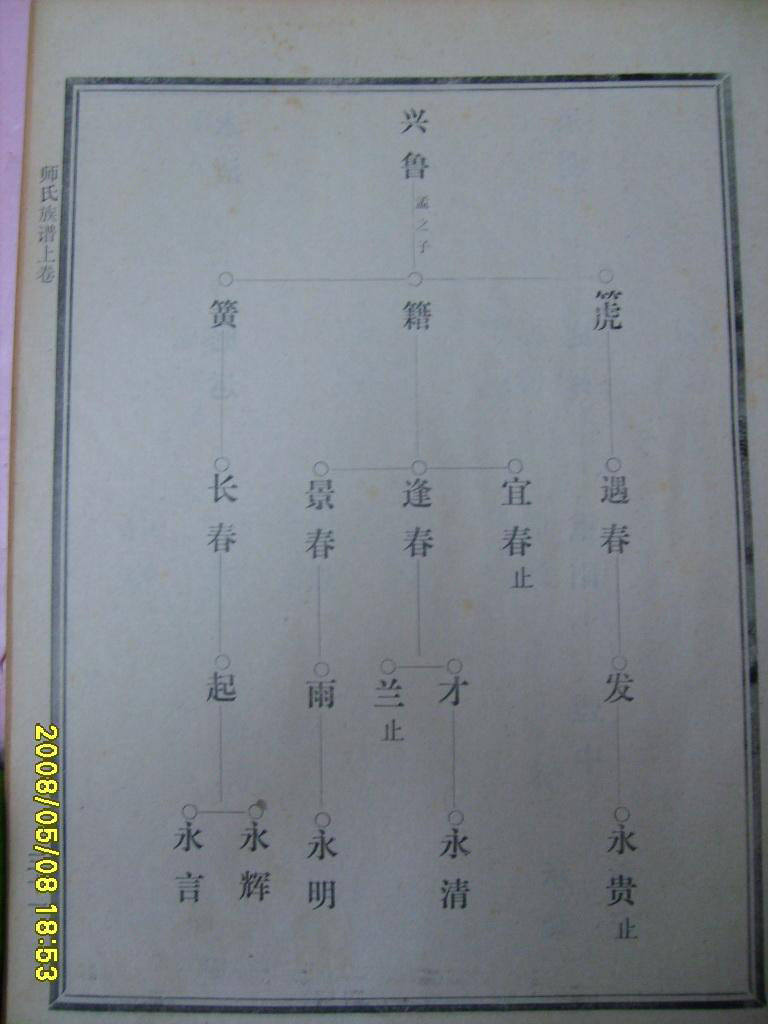 兴鲁
孟之子
箎
籍
簧
遇春
宜春止
逢春
景春
长春
发
才
兰止
雨
起
永贵止
永清
永明
永辉
永言
师氏族谱上卷
2008/05/08 18:53